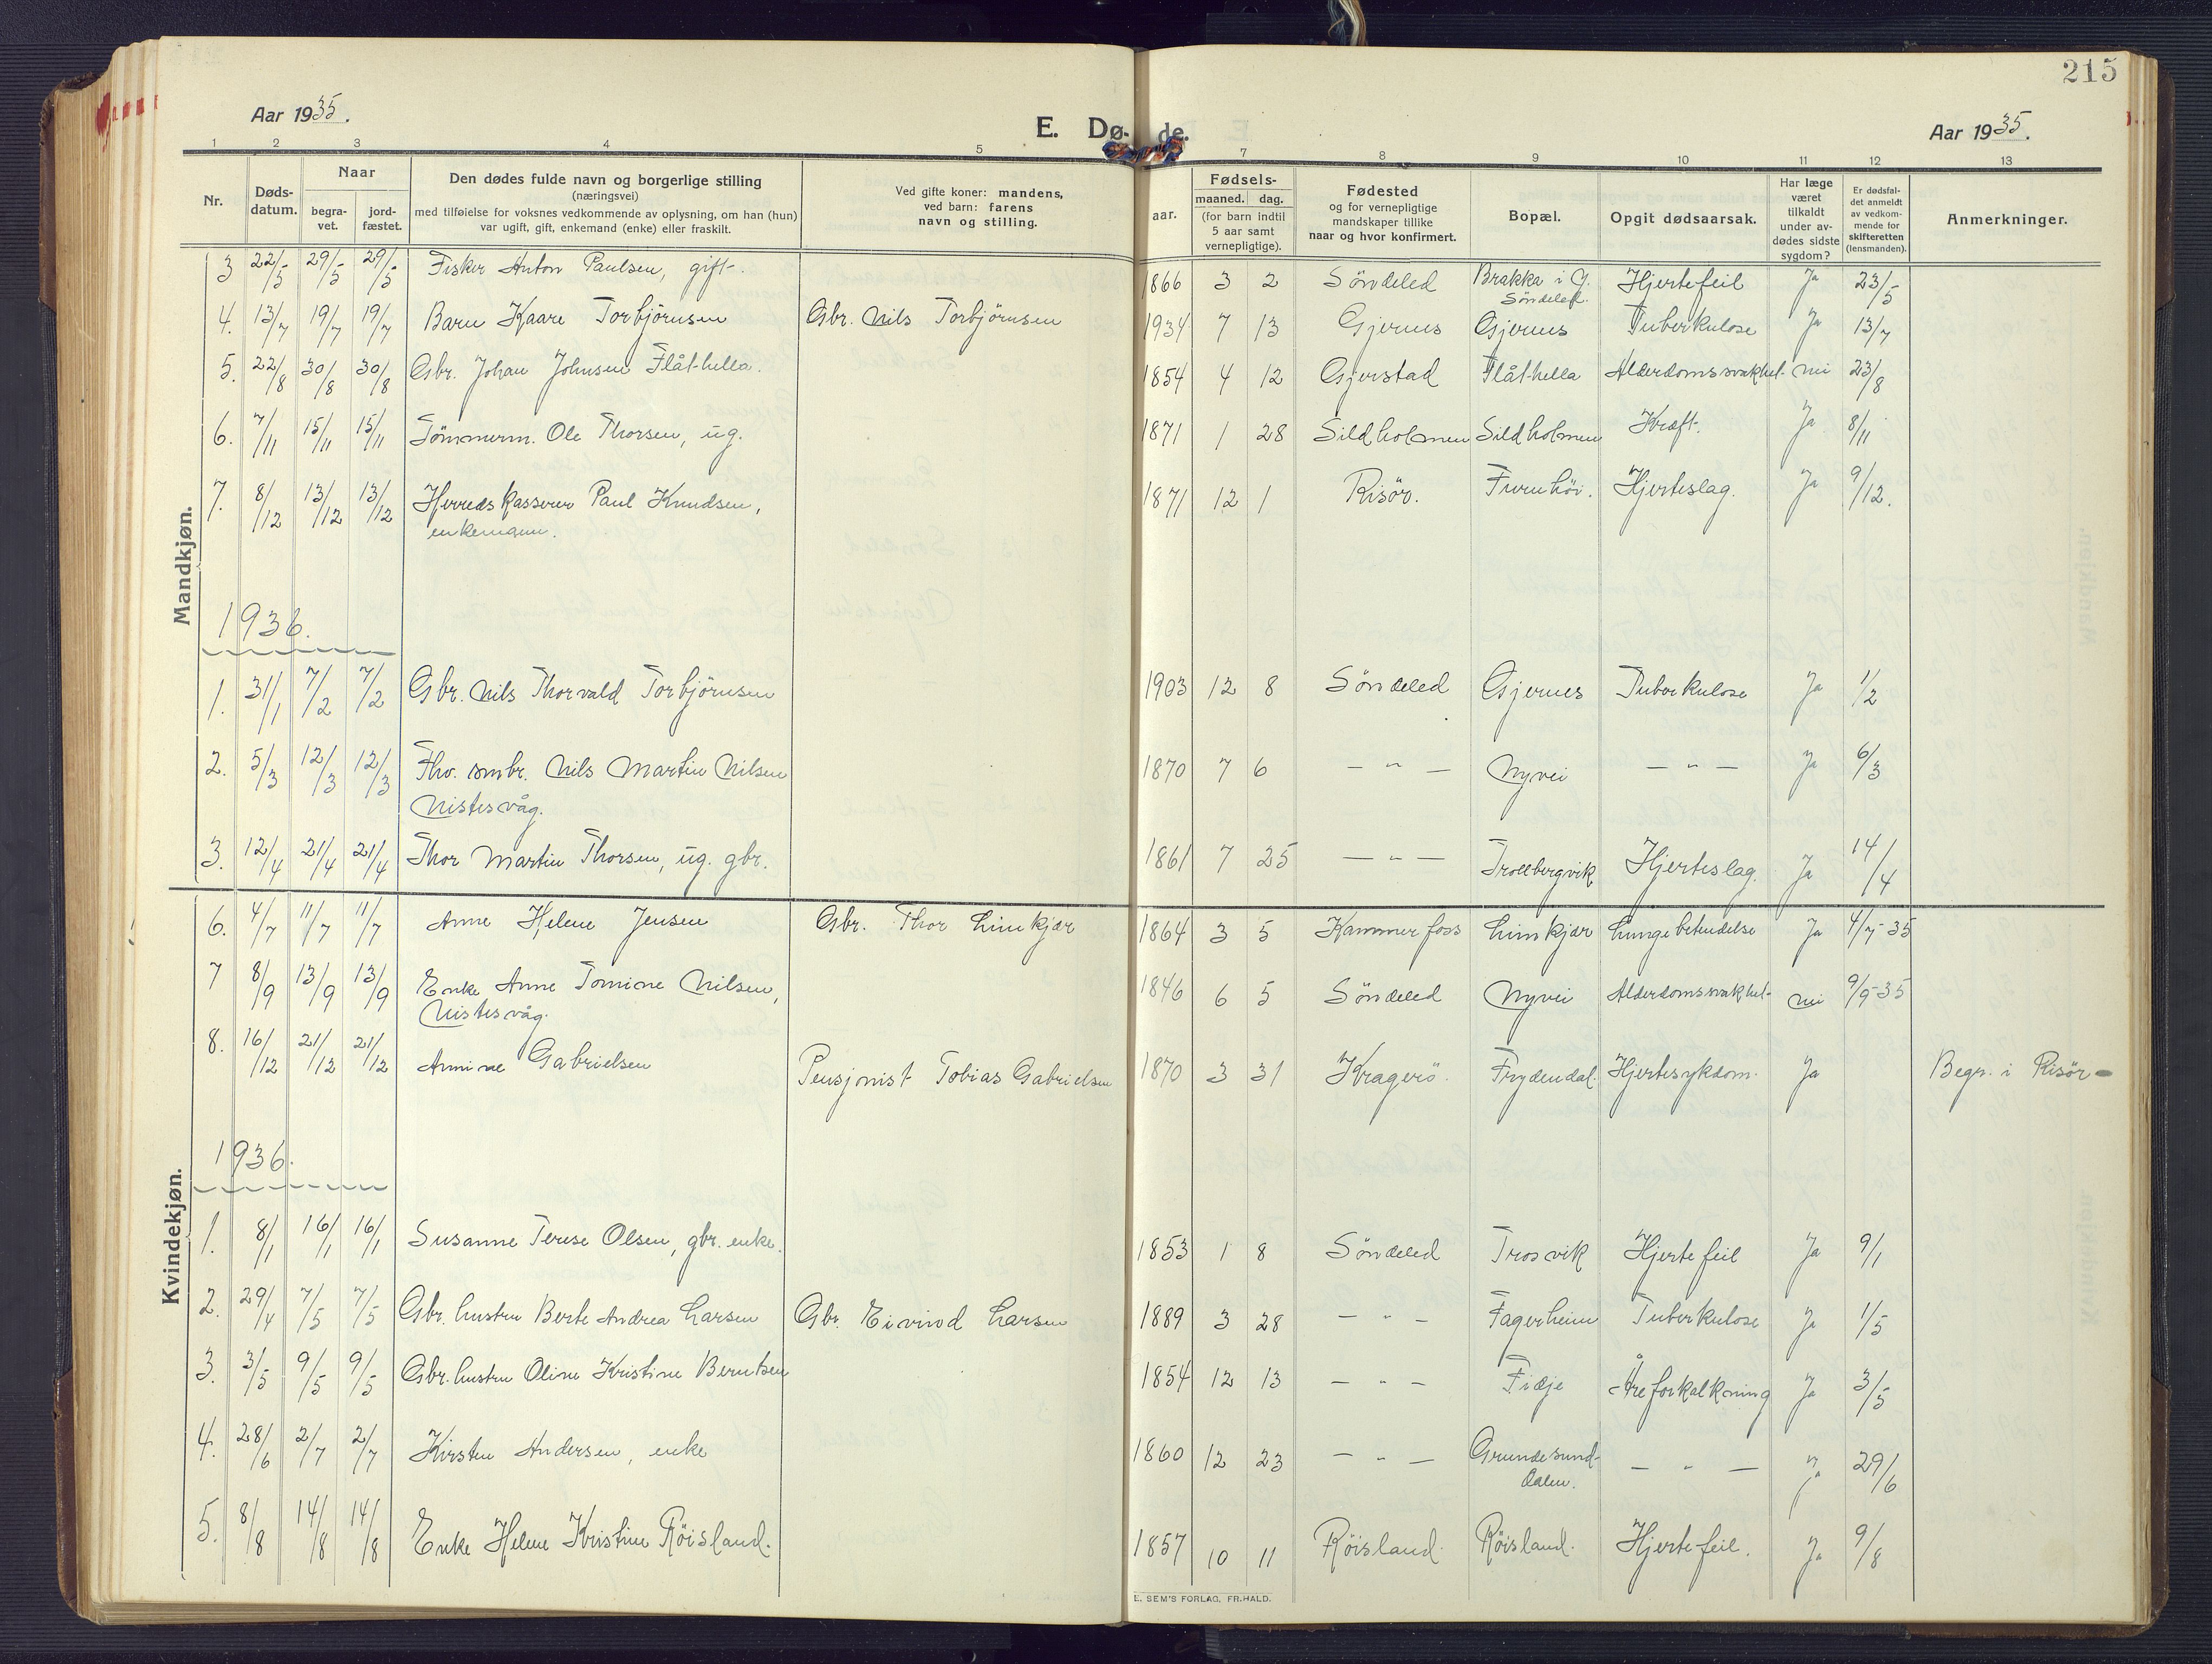 215
Aar 1935.
E. Dø- de.
Aar 1935.
1 2 3 4 5 7 8 9 10 11 12 13
Nr.
Døds-
datum.
Naar
begra-
vet.
jord-
fæstet.
Den dødes fulde navn og borgerlige stilling
(næringsvei)
med tilføielse for voksnes vedkommende av oplysning, om han (hun)
var ugift, gift, enkemand (enke) eller fraskilt.
Ved gifte koner: mandens,
ved barn: farens
navn og stilling.
aar.
Fødsels-
maaned. dag.
(for barn indtil
5 aar samt
vernepligtige).
Fødested
og for vernepligtige
mandskaper tillike
naar og hvor konfirmert.
Bopæl.
Opgit dødsaarsak.
Har læge
været
tilkaldt
under av-
dødes sidste
sygdom?
Er dødsfal-
det anmeldt
av vedkom-
mende for
skifteretten
(lensmanden).
Anmerkninger.
Mandkjøn.
3 22/5 29/5 29/5 Fisker Anton Paulsen, gift. 1866 3 2 Söndeled Brakka i G. Hjertefeil Ja 23/5
Söndeled.
4. 13/7 19/7 19/7 Barn Kaare Torbjörnsen Gbr. Nils Torbjörnsen 1934 7 13 Gjernes Gjernes Tuberkulose Ja 13/7
5. 22/8 30/8 30/8 Gbr. Johan Johnsen Flåthella. 1854 4 12 Gjerstad Flåthella Alderdomssvakhet nei 23/8
6. 7/11 15/11 15/11 Tömmerm. Ole Thorsen, ug. 1871 1 28 Sildholmen Sildholmen Kræft. Ja 8/11
7. 8/12 13/12 13/12 Herredskasserer Paul Knudsen, 1871 12 1 Risör. Furuhöi. Hjerteslag. Ja 9/12.
enkemann.
1936.
1. 31/1 7/2 7/2 Gbr. Nils Thorvald Torbjörnsen 1903 12 8 Söndeled Gjernes Tuberkulose Ja 1/2
2. 5/3 12/3 12/3 Fhv. smbr. Nils Martin Nilsen 1870 7 6 — " — Nyvei — " — Ja 6/3
Nistesvåg.
3. 12/4 21/4 21/4 Thor Martin Thorsen, ug. gbr. 1861 7 25 — " — Trollbergvik Hjerteslag. Ja 14/4
Kvindekjøn.
6. 4/7 11/7 11/7 Anne Helene Jensen Gbr. Thor Limkjær 1864 3 5 Kammerfoss Limkjær Lungebetendelse Ja 4/7-35
7 8/9 13/9 13/9 Enke Anne Tomine Nilsen, 1846 6 5 Söndeled Nyvei Alderdomssvakhet- nei 9/9-35
Nistesvåg.
8. 16/12 21/12 21/12 Annine Gabrielsen Pensjonist Tobias Gabrielsen 1870 3 31 Kragerö. Frydendal. Hjertesykdom. Ja Begr. i Risör-
1936.
1. 8/1 16/1 16/1 Susanne Terese Olsen, gbr. enke. 1853 1 8 Söndeled Trosvik Hjertefeil Ja 9/1
2. 29/4 7/5 7/5 Gbr. hustru Berte Andrea Larsen Gbr. Eivind Larsen 1889 3 28 — " — Fagerheim Tuberkulose Ja 1/5
3. 3/5 9/5 9/5 Gbr. hustru Oline Kristine Berntsen 1854 12 13 — " — Fidje Åreforkalkning Ja 3/5
4. 28/6 2/7 2/7 Kirsten Andersen, enke 1860 12 23 — " — Grundesund- — " — Ja 29/6
Dalen.
5. 8/8 14/8 14/8 Enke Helene Kristine Röisland. 1857 10 11 Röisland. Röisland. Hjertefeil. Ja 9/8
E. SEM'S FORLAG, FR.HALD.